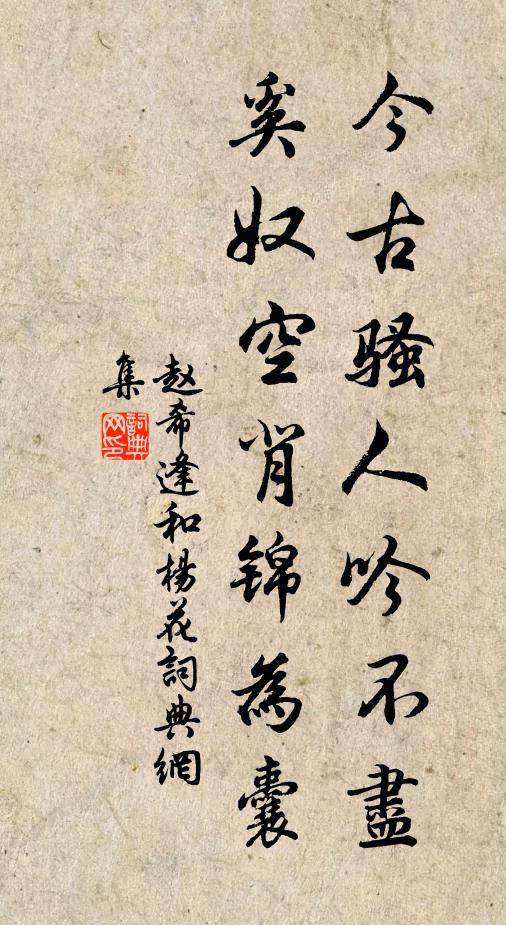 今古骚人吟不盡
奚奴空背锦為囊
赵希逢和楊花詞典網
集
詞典网印